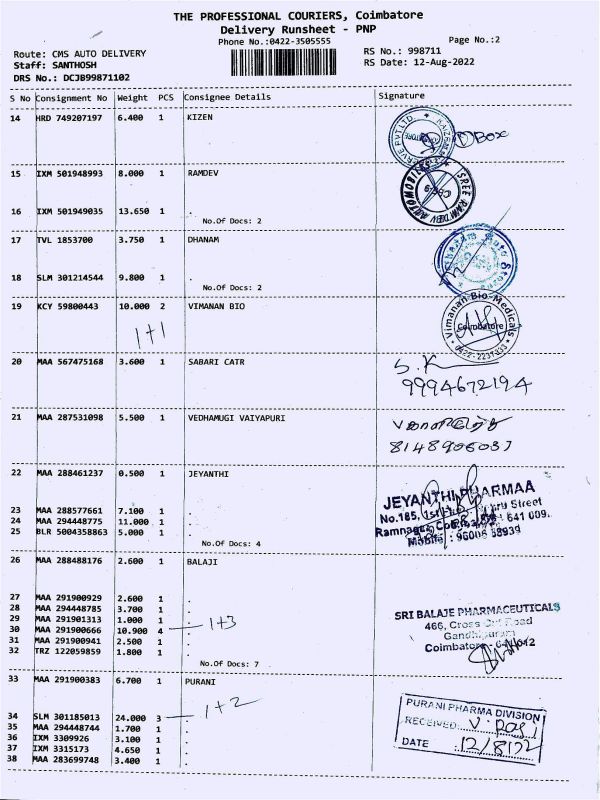 THE PROFESSIONAL COURIERS, Coimbatore
Delivery Runsheet - PNP
Phone No.:0422-3505555
Page No.:2
Route: CMS AUTO DELIVERY
RS No.: 998711
Staff: SANTHOSH
RS Date: 12-Aug-2022
DRS No.: DCJB99871102
S No Consignment No Weight PCS Consignee Details Signature
14 HRD 749207197 6.400 1 KIZEN
Box
15 IXM 501948993 8.000 1 RAMDEV
SREE RAMDEV AUTOMOBILES
CBE-9
16 IXM 501949035 13.650 1 .
No.Of Docs: 2
17 TVL 1853700 3.750 1 DHANAM
18 SLM 301214544 9.800 1 .
No.Of Docs: 2
19 KCY 59800443 10.000 2 VIMANAN BIO
1+1
Vimanan Bio-Medicals
Coimbatore
20 MAA 567475168 3.600 1 SABARI CATR
S.K
9994672194
21 MAA 287531098 5.500 1 VEDHAMUGI VAIYAPURI
8148906037
22 MAA 288461237 0.500 1 JEYANTHI
JEYANTHI PHARMAA
No.185, 1st Street
Ramnagar, 641 009.
Mobile : 96006 58939
23 MAA 288577661 7.100 1 .
24 MAA 294448775 11.000 1 .
25 BLR 5004358863 5.000 1 .
No.Of Docs: 4
26 MAA 288488176 2.600 1 BALAJI
27 MAA 291900929 2.600 1 .
28 MAA 294448785 3.700 1 .
29 MAA 291901313 1.000 1 .
30 MAA 291900666 10.900 4 . 1+3
31 MAA 291900941 2.500 1 .
32 TRZ 122059859 1.800 1 .
No.Of Docs: 7
SRI BALAJE PHARMACEUTICALS
466, Cross Cut Road
Gandhipuram
Coimbatore - 641 012
33 MAA 291900383 6.700 1 PURANI
34 SLM 301185013 24.000 3 . 1+2
35 MAA 294448744 1.700 1 .
36 IXM 3309926 3.100 1 .
37 IXM 3315173 4.650 1 .
38 MAA 283699748 3.400 1 .
PURANI PHARMA DIVISION
RECEIVED:
DATE 12/8/22